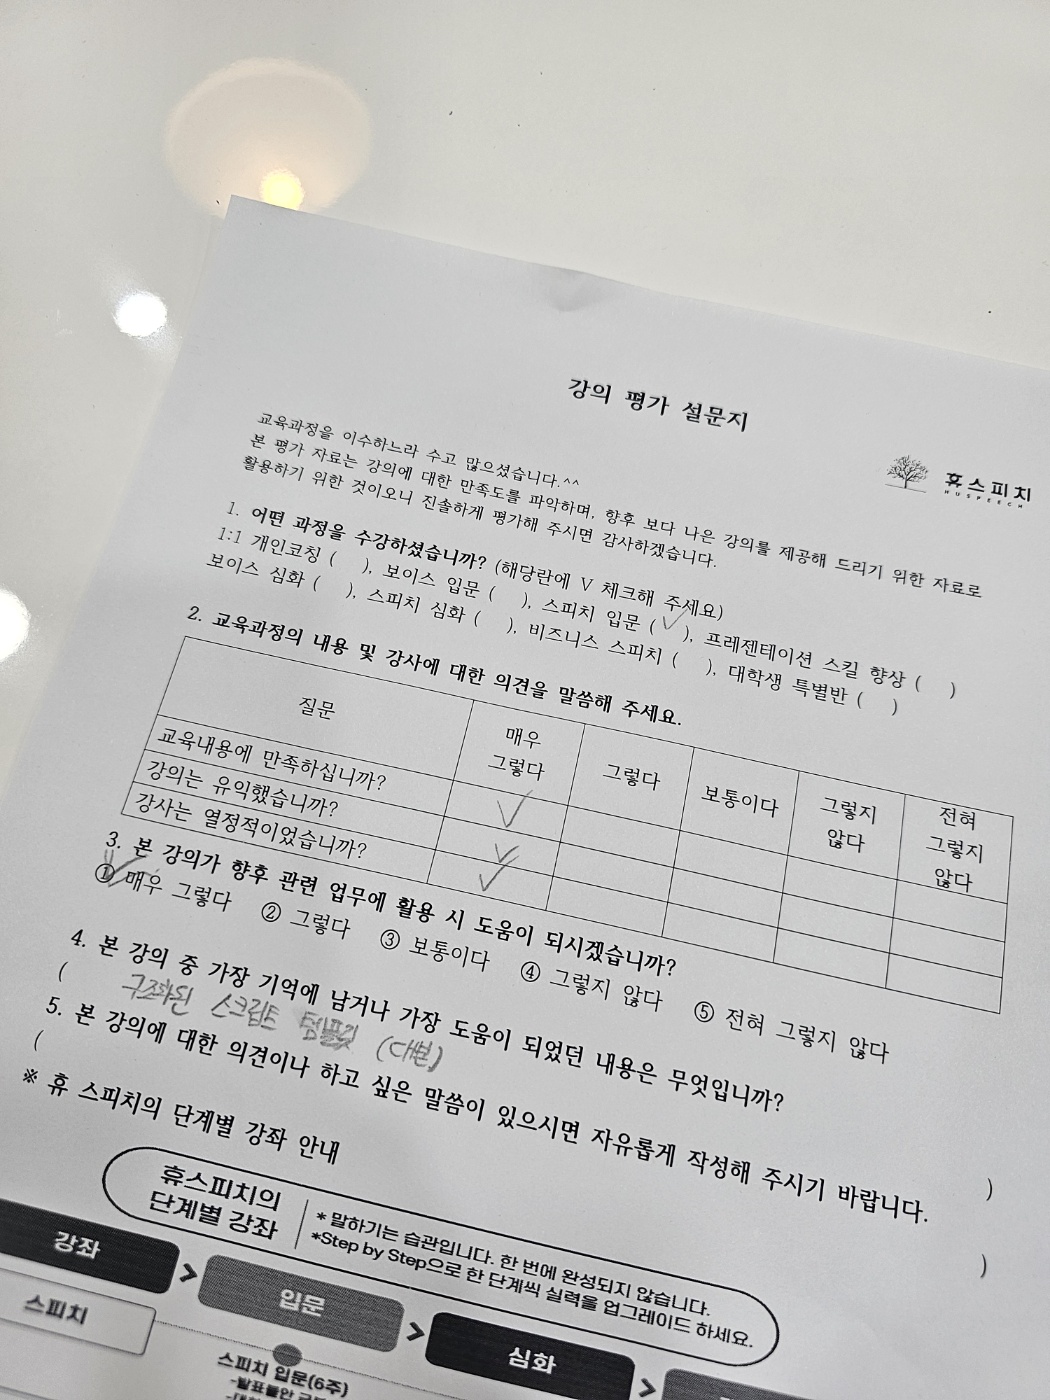 강의 평가 설문지
휴스피치
HUSPEECH
교육과정을 이수하느라 수고 많으셨습니다.^^
본 평가 자료는 강의에 대한 만족도를 파악하며, 향후 보다 나은 강의를 제공해 드리기 위한 자료로
활용하기 위한 것이오니 진솔하게 평가해 주시면 감사하겠습니다.
1. 어떤 과정을 수강하셨습니까? (해당란에 V 체크해 주세요)
1:1 개인코칭 ( ), 보이스 입문 ( ), 스피치 입문 ( ✓ ), 프레젠테이션 스킬 향상 ( )
보이스 심화 ( ), 스피치 심화 ( ), 비즈니스 스피치 ( ), 대학생 특별반 ( )
2. 교육과정의 내용 및 강사에 대한 의견을 말씀해 주세요.
질문 매우 그렇다 그렇다 보통이다 그렇지 않다 전혀 그렇지 않다
교육내용에 만족하십니까? ✓
강의는 유익했습니까? ✓
강사는 열정적이었습니까? ✓
3. 본 강의가 향후 관련 업무에 활용 시 도움이 되시겠습니까?
① 매우 그렇다 ② 그렇다 ③ 보통이다 ④ 그렇지 않다 ⑤ 전혀 그렇지 않다
4. 본 강의 중 가장 기억에 남거나 가장 도움이 되었던 내용은 무엇입니까?
( 구조화된 스크립트 템플릿 (대본) )
5. 본 강의에 대한 의견이나 하고 싶은 말씀이 있으시면 자유롭게 작성해 주시기 바랍니다.
( )
※ 휴 스피치의 단계별 강좌 안내
휴스피치의
단계별 강좌
* 말하기는 습관입니다. 한 번에 완성되지 않습니다.
*Step by Step으로 한 단계씩 실력을 업그레이드 하세요.
강좌 > 입문 > 심화 >
스피치
스피치 입문(6주)